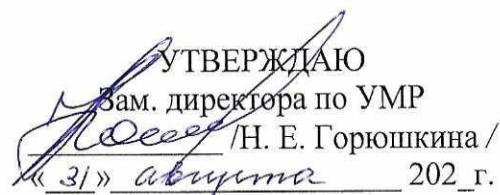 УТВЕРЖДАЮ
Зам. директора по УМР
/Н. Е. Горюшкина /
«31» августа 202_г.